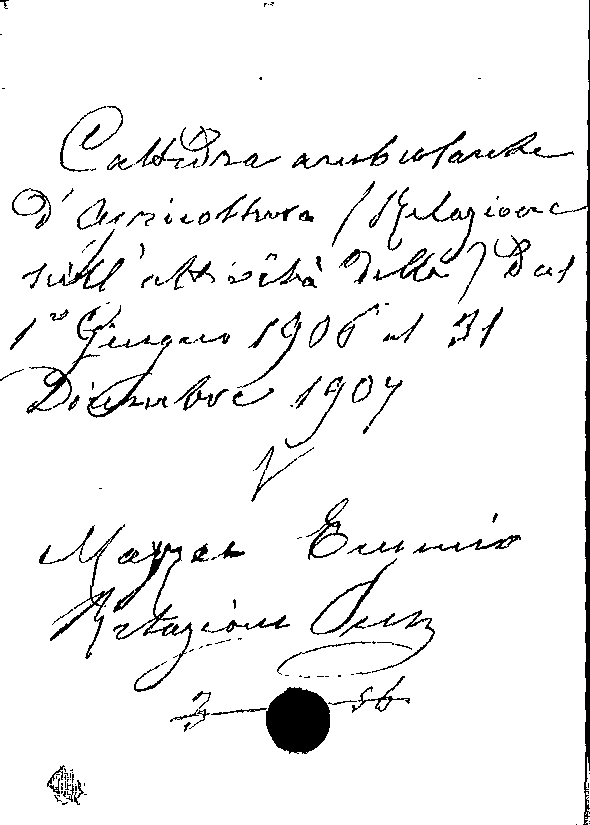 Cattedra ambulante
d'Agricoltura (Relazione
sull'attività della) Dal
1º Giugno 1906 al 31
Dicembre 1907
V
Relazione
3 56